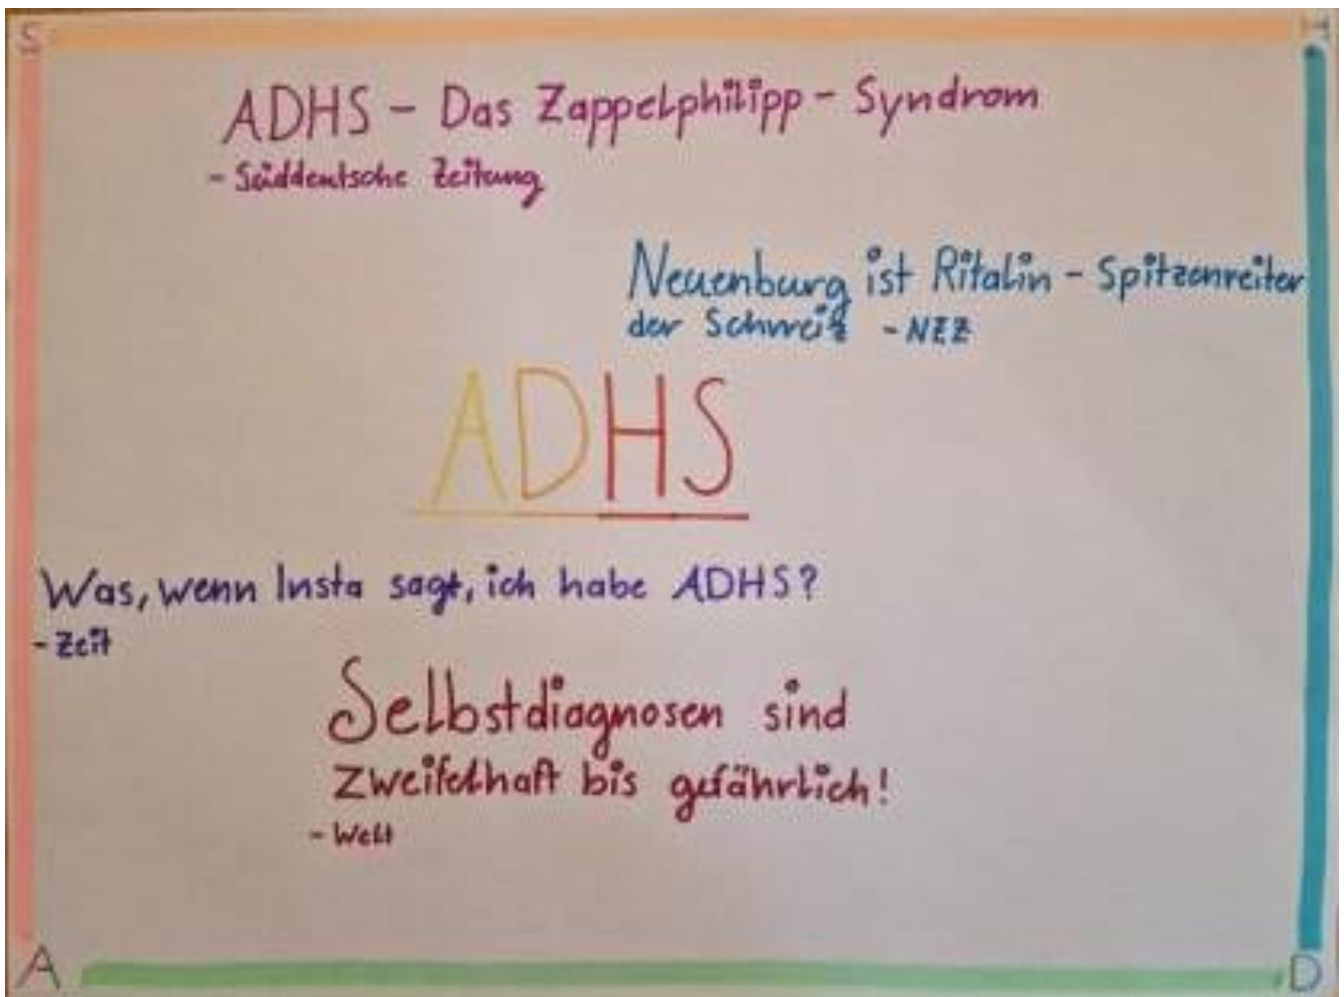 S H
ADHS - Das Zappelphilipp - Syndrom
- Süddeutsche Zeitung
Neuenburg ist Ritalin - Spitzenreiter
der Schweiz - NZZ
ADHS
Was, wenn Insta sagt, ich habe ADHS?
- Zeit
Selbstdiagnosen sind
zweifelhaft bis gefährlich!
- Welt
A D